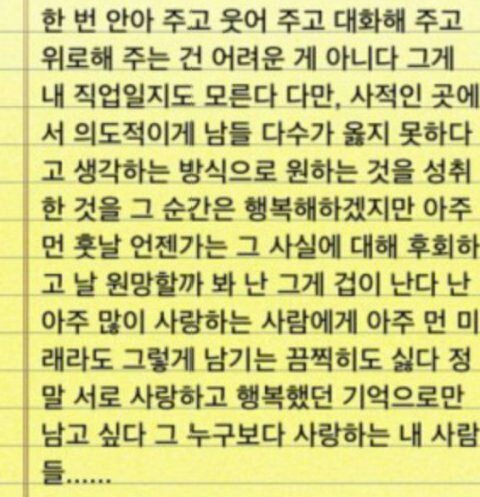 한 번 안아 주고 웃어 주고 대화해 주고
위로해 주는 건 어려운 게 아니다 그게
내 직업일지도 모른다 다만, 사적인 곳에
서 의도적이게 남들 다수가 옳지 못하다
고 생각하는 방식으로 원하는 것을 성취
한 것을 그 순간은 행복해하겠지만 아주
먼 훗날 언젠가는 그 사실에 대해 후회하
고 날 원망할까 봐 난 그게 겁이 난다 난
아주 많이 사랑하는 사람에게 아주 먼 미
래라도 그렇게 남기는 끔찍히도 싫다 정
말 서로 사랑하고 행복했던 기억으로만
남고 싶다 그 누구보다 사랑하는 내 사람
들......